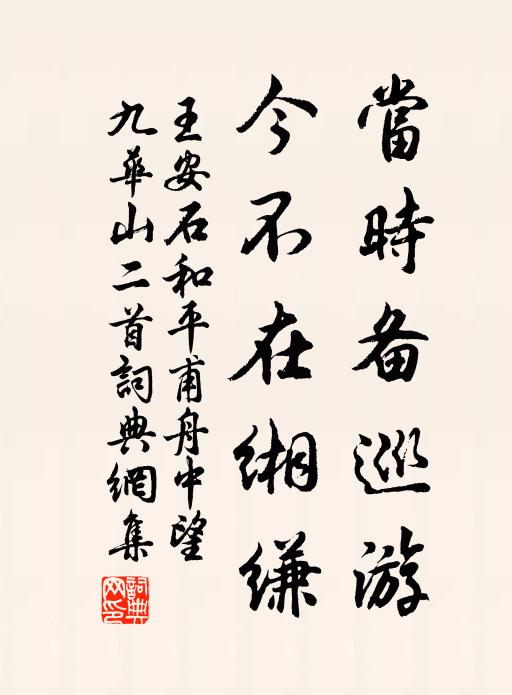 當時备巡游
今不在緗縑
王安石和平甫舟中望
九華山二首詞典網集
詞典網印